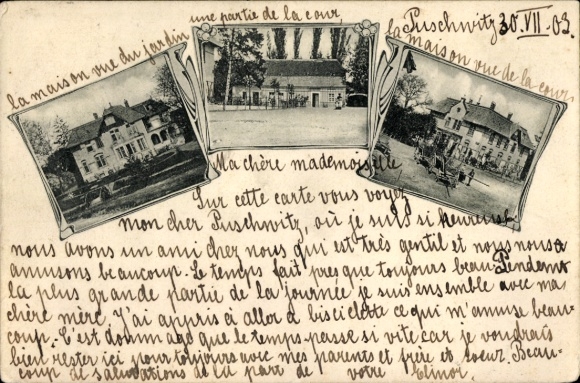 une partie de la cour
Puschwitz 30.VII.03.
la maison vue du jardin
la maison vue de la cour
Ma chère mademoiselle,
Sur cette carte vous voyez
mon cher Puschwitz, où je suis si heureuse
nous avons un ami chez nous qui est très gentil et nous nous
amusons beaucoup. Le temps fait presque toujours beau. Pendent
la plus grande partie de la journée je suis ensemble avec ma
chère mère. J'ai appris ci aller á bisciclette ce qui m'amuse beau-
coup. C'est dommage que le temps passe si vite car je voudrais
bien rester ici pour toujours avec mes parents et frère et soeur. Beau-
coup de salutations de la part de votre Elinor.